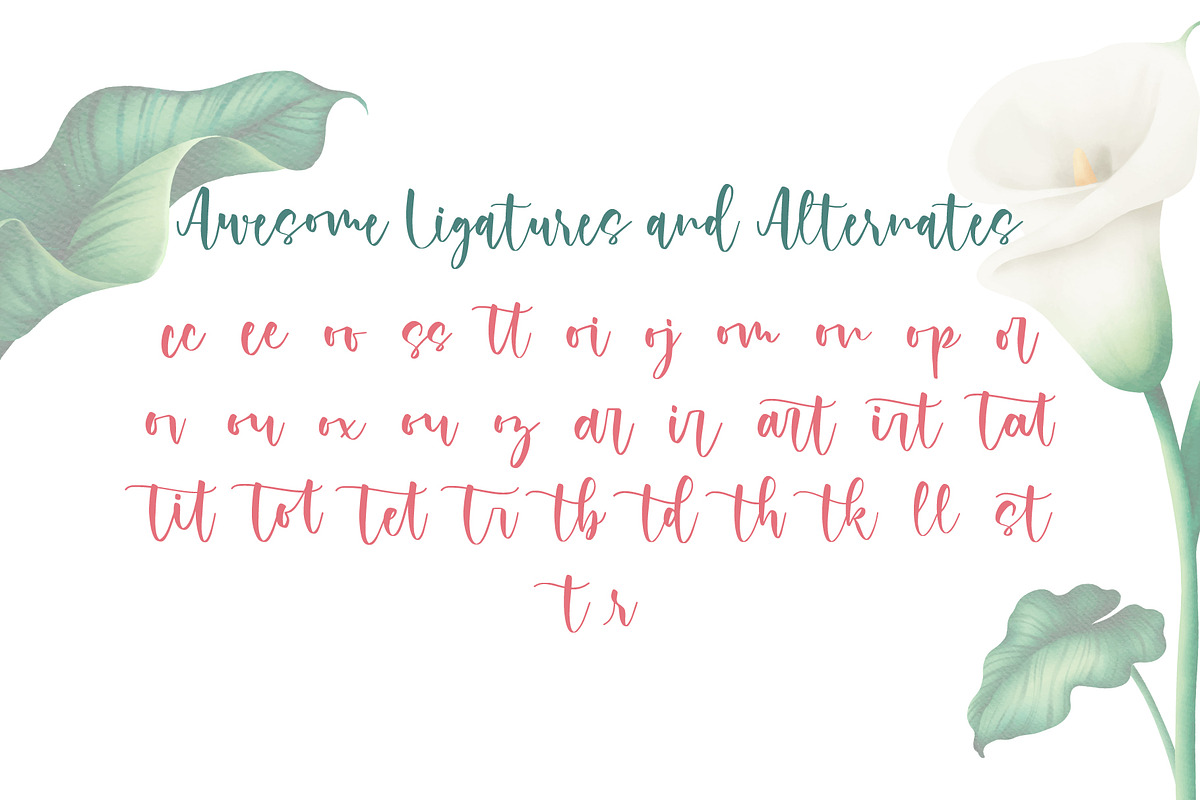 Awesome Ligatures and Alternates
cc ee oo ss tt oi oj om on op or
ov ou ox ou oz ar ir art irt tat
tit tot tet tr tb td th tk ll st
t r